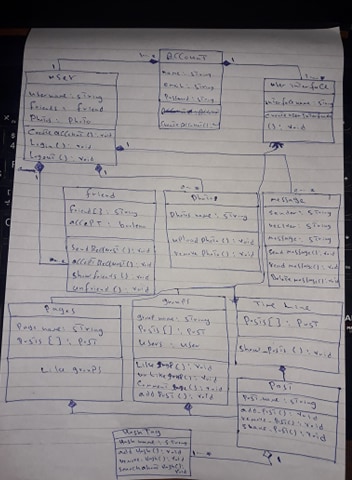 Account
name : string
Email : string
Password : string
Create Account()
1
user
username : string
friends : friend
Photo : Photo
Create account() : void
Login() : void
Logout() : void
1
1
1
user interface
interface name : string
() : void
1
friend
friend[] : string
accept : boolean
Send Request() : void
accept Request() : void
show friends() : void
unfriend() : void
Photo
Photo name : string
upload Photo() : void
remove Photo() : void
message
sender : string
message() : string
Send message() : void
Delete message() : void
Pages
Page name : string
posts[] : Post
Like groups
groups
group name : string
Posts[] : Post
users : user
Like group() : void
add Post() : void
Time Line
Posts[] : Post
show_Posts() : void
Post
Post name : string
add_Post() : void
remove_Post() : void
share_Post() : void
1
Hash Tag
Hash name : string
add Hash() : void
remove_Hash() : void
1